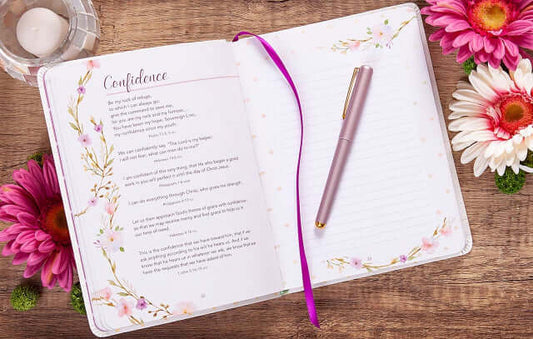 Confidence
Be my rock of refuge,
to which I can always go;
give the command to save me,
for you are my rock and my fortress...
You have been my hope, Sovereign LORD,
my confidence since my youth.
Psalm 71:3, 5
We can confidently say, "The Lord is my helper;
I will not fear; what can man do to me?"
Hebrews 13:6
I am confident of this very thing, that He who began a good
work in you will perfect it until the day of Christ Jesus.
Philippians 1:6
I can do everything through Christ, who gives me strength.
Philippians 4:13
Let us then approach God's throne of grace with confidence,
so that we may receive mercy and find grace to help us in
our time of need.
Hebrews 4:16
This is the confidence that we have toward him, that if we
ask anything according to his will he hears us. And if we
know that he hears us in whatever we ask, we know that we
have the requests that we have asked of him.
1 John 5:14-15